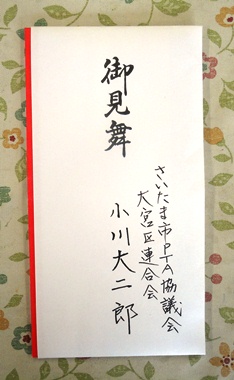 御見舞
さいたま市PTA協議会
大宮区連合会
小川大二郎